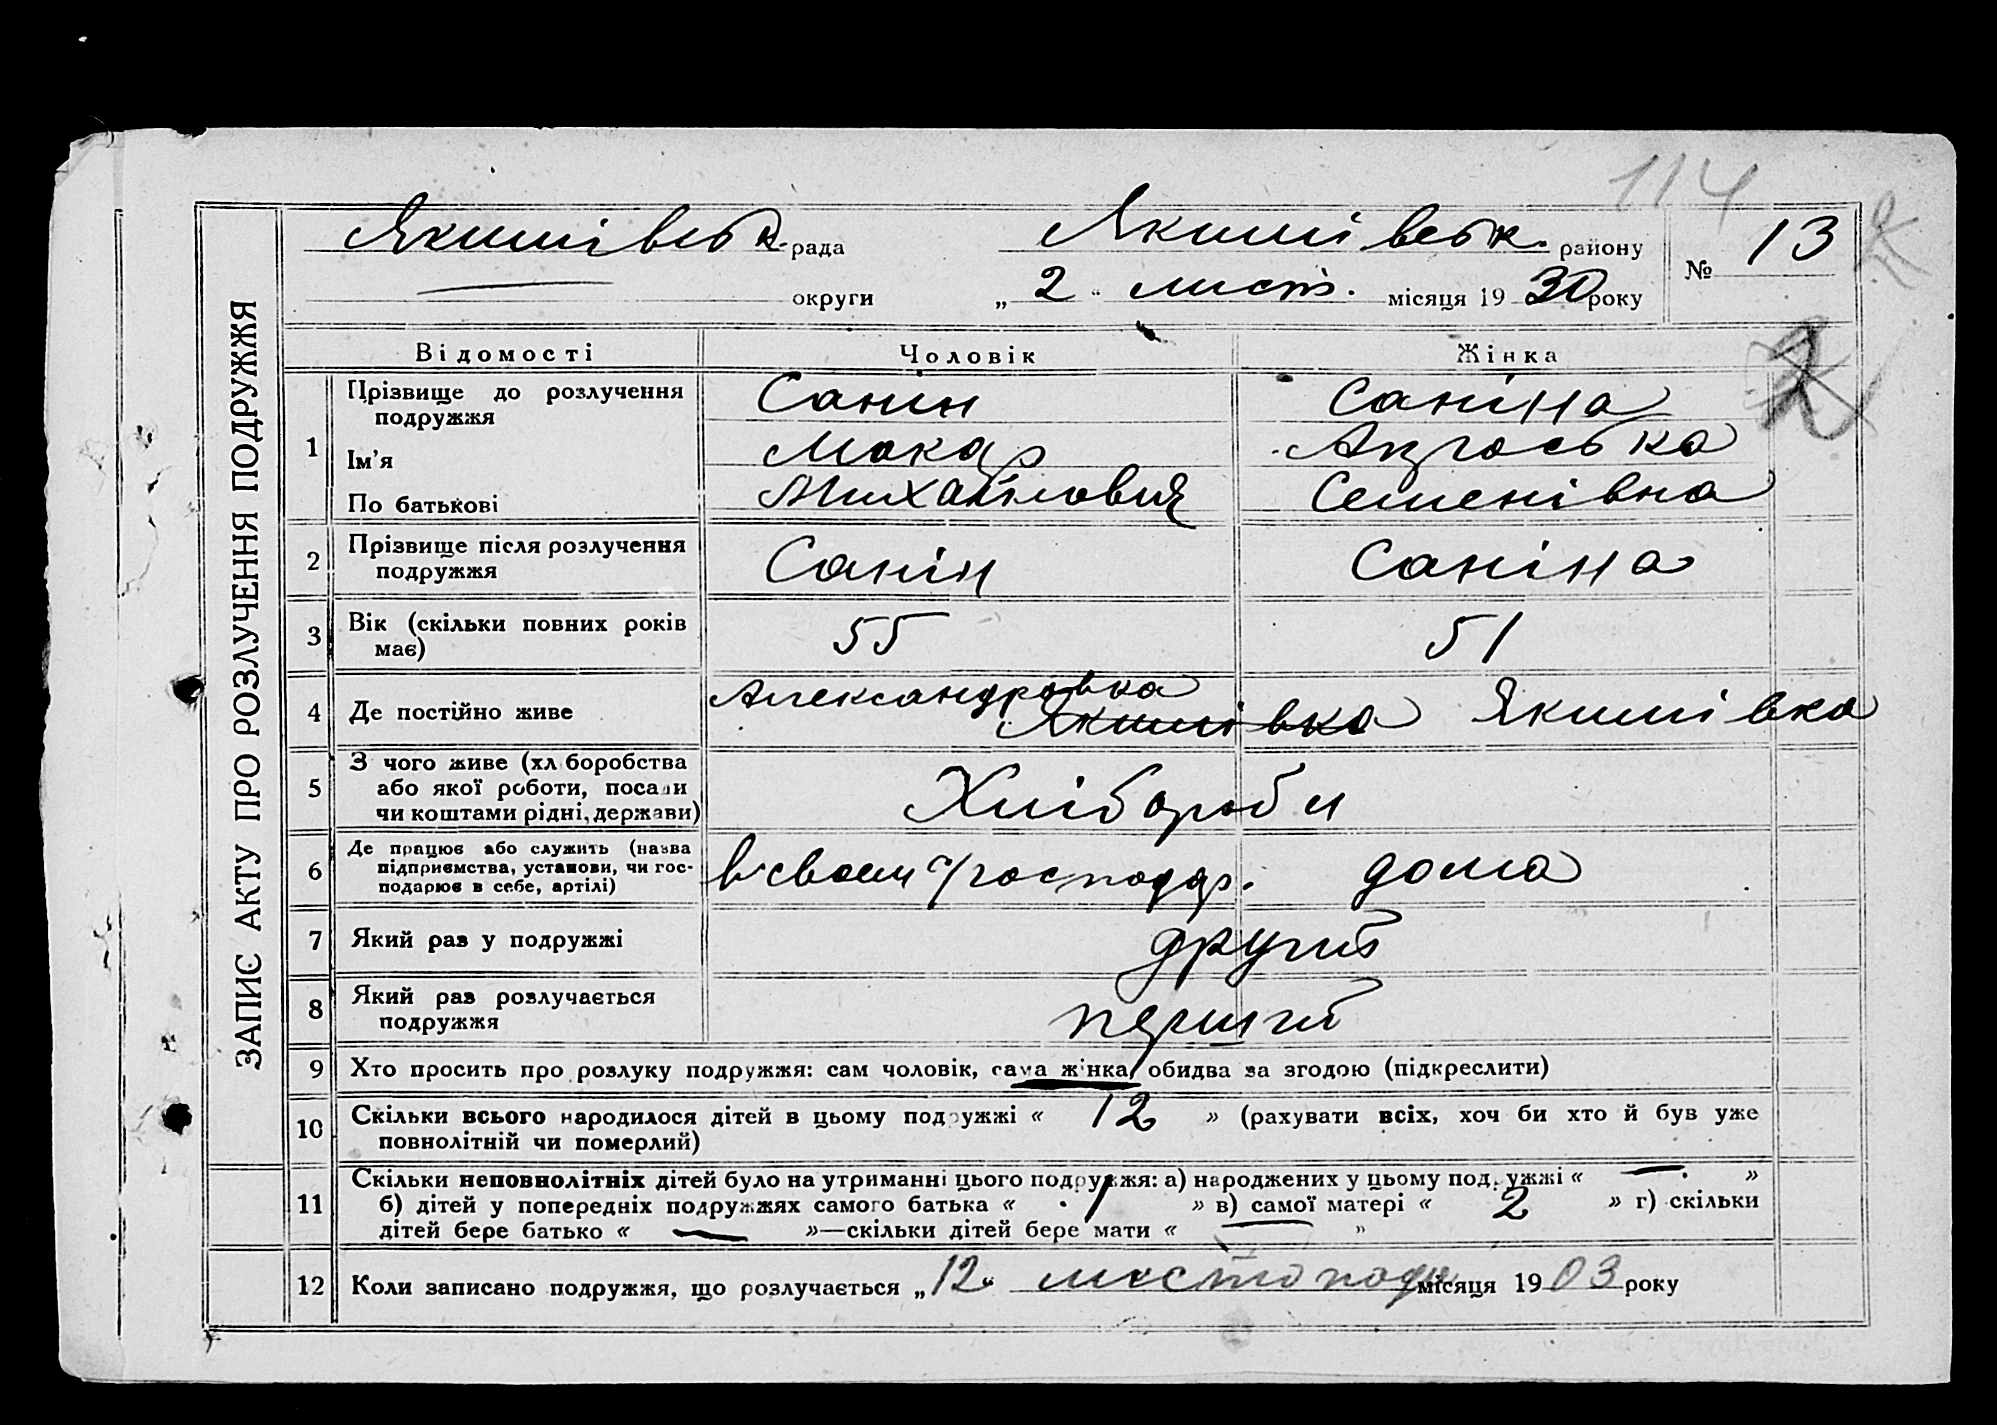 114
ЗАПИС АКТУ ПРО РОЗЛУЧЕННЯ ПОДРУЖЖЯ
Якимівськ. рада Якимівськ. району № 13
округи „ 2 “ лист. місяця 19 30 року
Відомості Чоловік Жінка
1 Прізвище до розлучення Санін Саніна
подружжя
Ім'я Макар
По батькові Михайлович Семенівна
2 Прізвище після розлучення Санін Саніна
подружжя
3 Вік (скільки повних років 55 51
має)
4 Де постійно живе Александровка Якимівка Якимівка
5 З чого живе (хліборобства Хлібороби
або якої роботи, посади
чи коштами рідні, держави)
6 Де працює або служить (назва в своем с/господар. дома
підприємства, установи, чи гос-
подарює в себе, артілі)
7 Який раз у подружжі другий
8 Який раз розлучається перший
подружжя
9 Хто просить про розлуку подружжя: сам чоловік, сама жінка, обидва за згодою (підкреслити)
10 Скільки всього народилося дітей в цьому подружжі « 12 » (рахувати всіх, хоч би хто й був уже
повнолітній чи померлий)
11 Скільки неповнолітніх дітей було на утриманні цього подружжя: а) народжених у цьому подружжі « — »
б) дітей у попередніх подружжях самого батька « 1 » в) самої матері « 2 » г) скільки
дітей бере батько « — »—скільки дітей бере мати « — »
12 Коли записано подружжя, що розлучається „ 12 “ листопада місяця 19 03 року